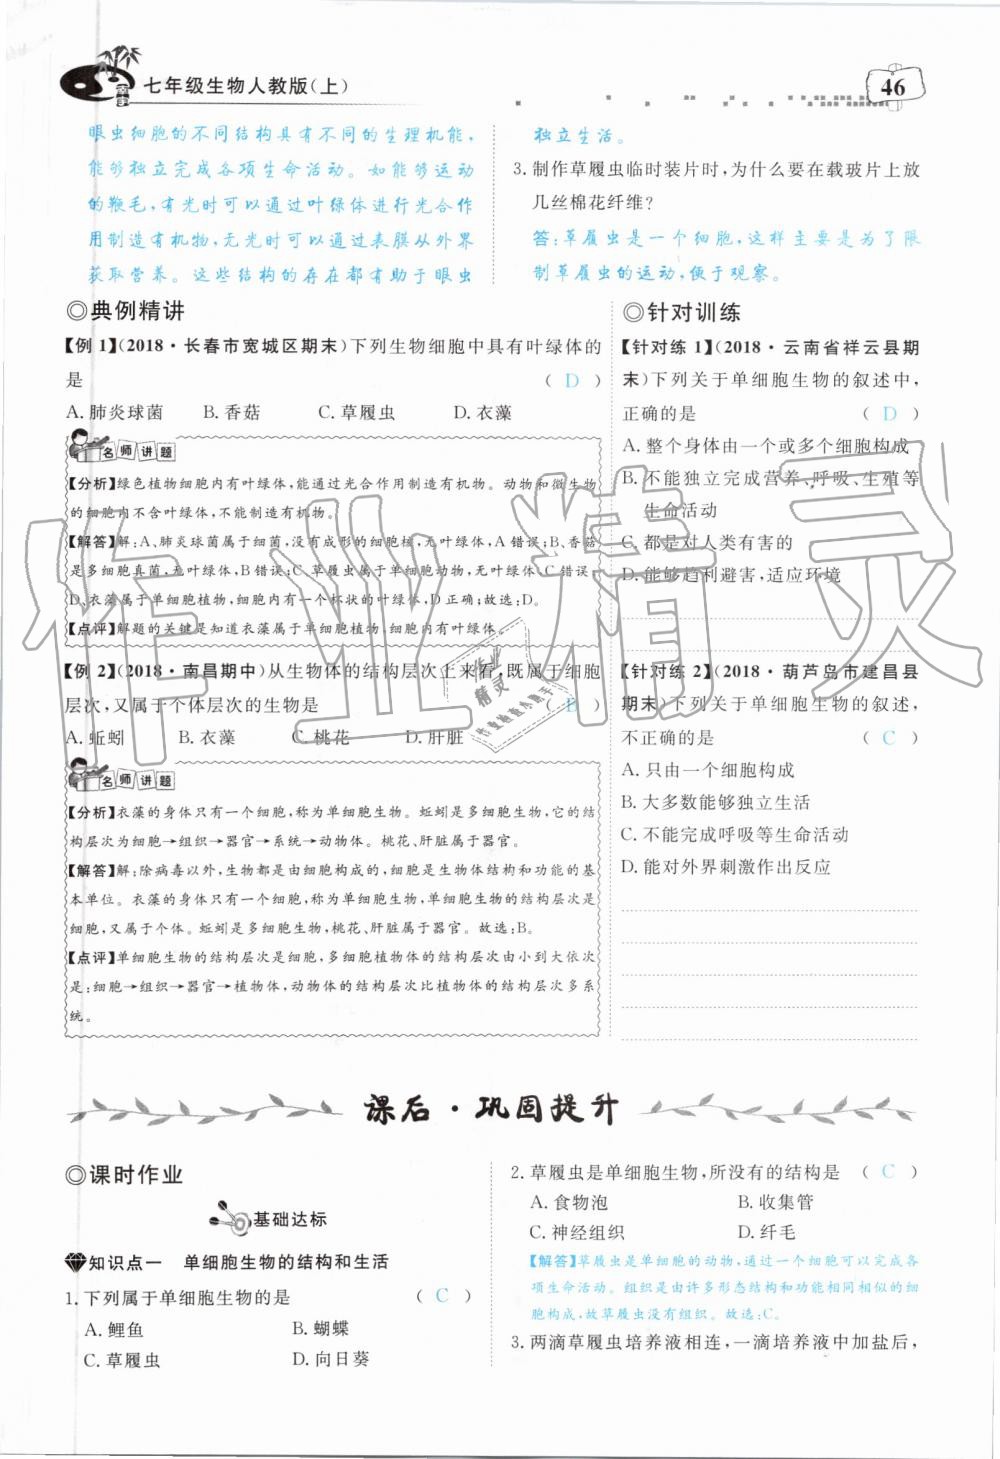 七年级生物人教版(上)
46
眼虫细胞的不同结构具有不同的生理机能,
能够独立完成各项生命活动。如能够运动
的鞭毛,有光时可以通过叶绿体进行光合作
用制造有机物,无光时可以通过表膜从外界
获取营养。这些结构的存在都有助于眼虫
独立生活。
3. 制作草履虫临时装片时,为什么要在载玻片上放
几丝棉花纤维?
答:草履虫是一个细胞,这样主要是为了限
制草履虫的运动,便于观察。
◎典例精讲
【例 1】(2018·长春市宽城区期末)下列生物细胞中具有叶绿体的
是 ( D )
A. 肺炎球菌 B. 香菇 C. 草履虫 D. 衣藻
名师讲题
【分析】绿色植物细胞内有叶绿体,能通过光合作用制造有机物。动物和微生物
的细胞内不含叶绿体,不能制造有机物。
【解答】解:A、肺炎球菌属于细菌,没有成形的细胞核,无叶绿体,A错误;B、香菇
是多细胞真菌,无叶绿体,B错误;C、草履虫属于单细胞动物,无叶绿体,C错误;
D、衣藻属于单细胞植物,细胞内有一个杯状的叶绿体,D正确;故选:D。
【点评】解题的关键是知道衣藻属于单细胞植物,细胞内有叶绿体。
【例 2】(2018·南昌期中)从生物体的结构层次上来看,既属于细胞
层次,又属于个体层次的生物是 ( B )
A. 蚯蚓 B. 衣藻 C. 桃花 D. 肝脏
名师讲题
【分析】衣藻的身体只有一个细胞,称为单细胞生物。蚯蚓是多细胞生物,它的结
构层次为细胞→组织→器官→系统→动物体。桃花、肝脏属于器官。
【解答】解:除病毒以外,生物都是由细胞构成的,细胞是生物体结构和功能的基
本单位。衣藻的身体只有一个细胞,称为单细胞生物,单细胞生物的层次是
细胞,又属于个体。蚯蚓是多细胞生物,桃花、肝脏属于器官。故选:B。
【点评】单细胞生物的结构层次是细胞,多细胞植物体的结构层次由小到大依次
是:细胞→组织→器官→植物体,动物体的结构层次比植物体的结构层次多系
统。
◎针对训练
【针对练 1】(2018·云南省祥云县期
末)下列关于单细胞生物的叙述中,
正确的是 ( D )
A. 整个身体由一个或多个细胞构成
B. 不能独立完成营养、呼吸、生殖等
生命活动
C. 都是对人类有害的
D. 能够趋利避害,适应环境
【针对练 2】(2018·葫芦岛市建昌县
期末)下列关于单细胞生物的叙述,
不正确的是 ( C )
A. 只由一个细胞构成
B. 大多数能够独立生活
C. 不能完成呼吸等生命活动
D. 能对外界刺激作出反应
课后·巩固提升
◎课时作业
基础达标
知识点一 单细胞生物的结构和生活
1. 下列属于单细胞生物的是 ( C )
A. 鲤鱼 B. 蝴蝶
C. 草履虫 D. 向日葵
2. 草履虫是单细胞生物,所没有的结构是 ( C )
A. 食物泡 B. 收集管
C. 神经组织 D. 纤毛
【解答】草履虫是单细胞的动物,通过一个细胞可以完成各
项生命活动。组织是由许多形态结构和功能相同相似的细
胞构成,故草履虫没有组织。故选:C。
3. 两滴草履虫培养液相连,一滴培养液中加盐后,
作业精灵